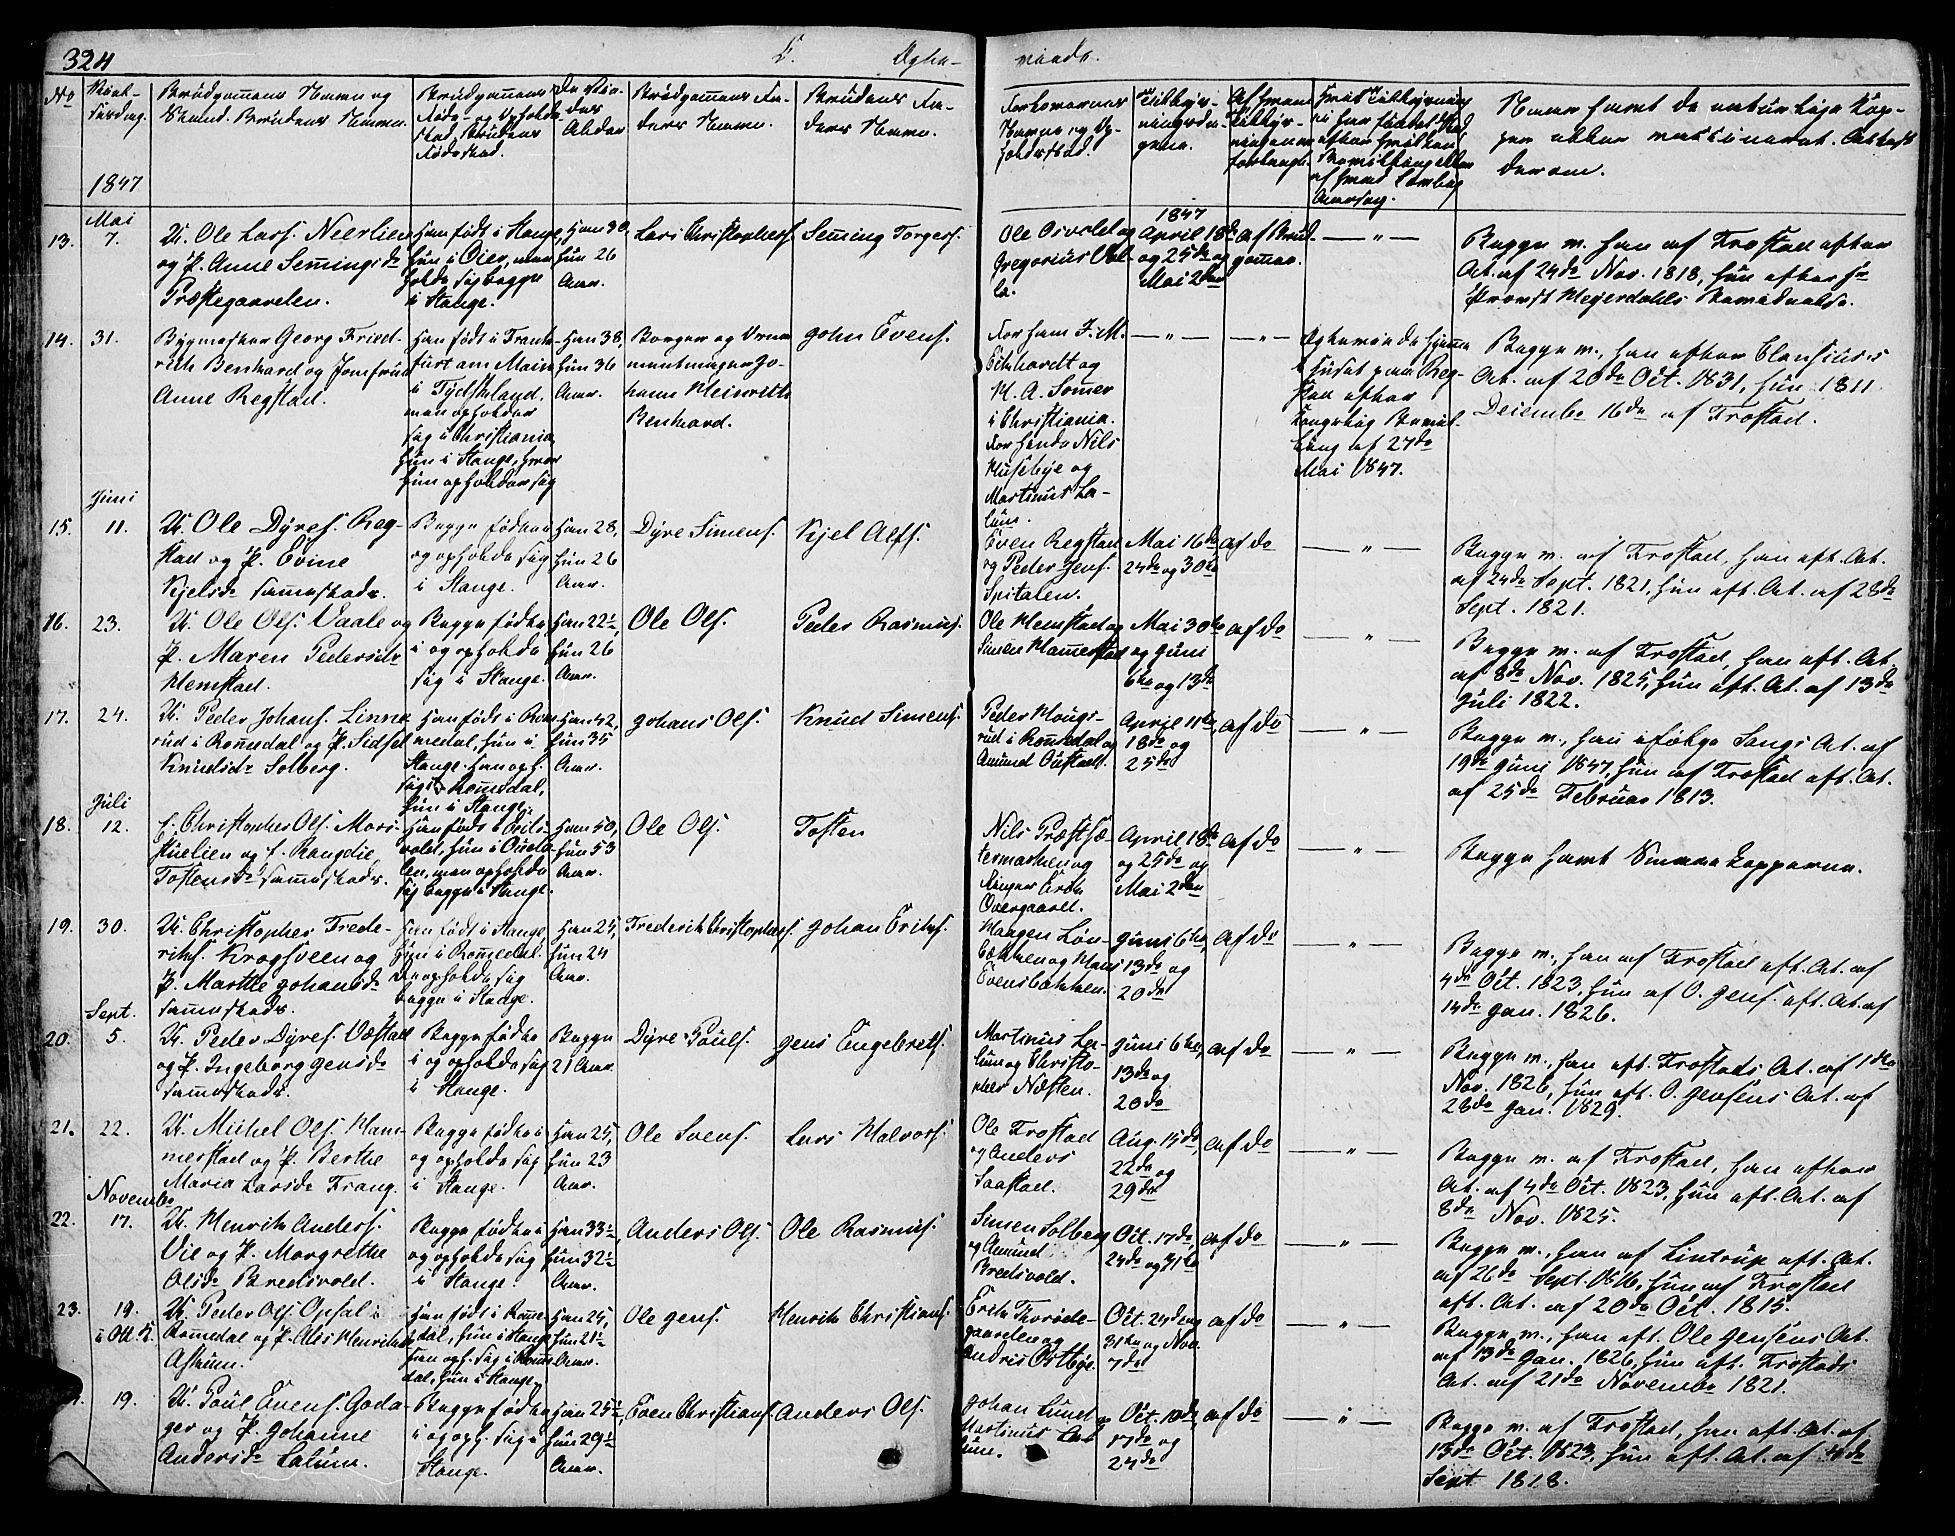 324
E. Ægte-
viede.
No
Viel-
sesdag.
Brudgommens Navn og
Stand. Brudens Navn.
Brudgommens
Føde- og Opholds-
sted, Brudens
Fødested.
Alder
Brudgommens Fa-
ders Navn.
Brudens Fa-
ders Navn.
Forlovernes
Navne og Op-
holdssted.
Tillys-
ningsda-
gene.
1847
Mai
13. 7.
U. Ole Larss. Neerlien
og P. Anne Semingsdr
Præstegaarden.
Han født i Stange,
hun i Øier, men
holde sig begge
i Stange.
Han 30,
hun 26
Aar.
Lars Christophers.
Seming Torgers.
Ole Osvold og
Gregorius
1847
April 18de
og 25de og
Mai 2den
af Brud-
gommen.
— " —
Begge v. han af Frostad efter
At. af 24de Nov. 1818, hun efter
Provst Meyerdahls
14. 31.
Bygmester Georg Fried-
rich Benhard og Jomfrue
Anne Regstad.
Han født i Frank-
furt am Main
i Tydskland,
men opholder
sig i Christiania,
hun i Stange, hvor
hun opholder sig
Han 38,
hun 36
Aar.
Borger og
Jo-
hann Heinrich
Benhard.
John Evens.
For ham F. M.
Ekhardt og
M. A. Somer
i Christiania.
For hende Nils
Huseby og
Martinus La-
lum.
— " —
— " —
Ægteviede hjemme
i Huset paa Reg-
stad efter
Kongelig Bevil-
ling af 27de
Mai 1847.
Begge v., han efter Clausius's
At. af 20de Oct. 1831, hun 1811
December 16de af Frostad.
Juni
15. 11.
U. Ole Dyres. Reg-
stad og P. Evine
Kjelsdr sammesteds.
Begge fødte
og opholde sig
i Stange.
Han 28,
hun 26
Aar.
Dyre Simens.
Kjel Alfs.
Even Regstad
og Peder Jens.
Spitalen.
Mai 16de
24de og 30te
af do
— " —
Begge v. af Frostad, han eft. At.
af 24de Sept. 1821, hun eft. At. af 28de
Sept. 1821.
16. 23.
U. Ole Ols. Vaale og
P. Maren Pedersdr
Hemstad.
Begge fødte
i og opholde
sig i Stange.
Han 22½,
hun 26
Aar.
Ole Ols.
Peder Rasmus.
Ole Hemstad og
Simen Hammerstad
Mai 30te
og Juni
6te og 13de
af do
— " —
Begge v. af Frostad, han eft. At.
af 8de Nov. 1825, hun eft. At. af 13de
Juli 1822.
17. 24.
U. Peder Johans. Linne-
rud i Romedal og P. Sidsel
Knudsdr Solberg.
Han født i Ro-
medal, hun i
Stange. han oph.
sig i Romedal,
hun i Stange.
Han 42,
hun 35
Aar.
Johans Ols.
Knud Simens.
Peder Hougs-
rud i Romedal og
Amund Oustad.
April 11te,
18de og
25de
af do
— " —
Begge v., han ifølge Sangs At. af
19de Juni 1847, hun af Frostad eft. At.
af 25de Februar 1813.
Juli
18. 12.
E. Christopher Ols. Mors-
tuelien og E. Rangdie
Tostensdr sammesteds.
Han født i Eids-
vold, hun i Oueda-
len, men opholde
sig begge i Stange.
Han 50,
hun 53
Aar.
Ole Ols.
Tosten
Nils Præstsæ-
termarken og
Ringer Erik
Overgaard.
April 18de
og 25de og
Mai 2den
af do
— " —
Begge havt Smaakopperne.
19. 30.
U. Christopher Frede-
riks. Krogsveen og
P. Marthe Johansdr
sammesteds.
Han født i Stange,
hun i Romedal.
De opholde sig
begge i Stange.
Han 25,
hun 24
Aar.
Frederik Christophers.
Johan Eriks.
Haagen Løn-
bakken og Hans
Evensbakken.
Juni 6te,
13de og
20de
af do
— " —
Begge v., han af Frostad eft. At. af
4de Oct. 1823, hun af O. Jens. eft. At. af
14de Jan. 1826.
Sept.
20. 5.
U. Peder Dyres. Væstad
og P. Ingeborg Jensdr
sammesteds.
Begge fødte
i og opholde sig
i Stange.
Begge
21 Aar.
Dyre Pouls.
Jens Engebrets.
Martinus La-
lum og Christo-
pher Næsten.
Juni 6te,
13de og
20de
af do
— " —
Begge v., han eft. Frostads At. af 1ste
Nov. 1826, hun eft. O. Jensens At. af
28de Jan. 1829.
21. 22.
U. Michel Ols. Ham-
merstad og P. Berthe
Maria Larsdr Frang.
Begge fødte i
og opholde sig
i Stange.
Han 25,
hun 23
Aar.
Ole Svens.
Lars Halvors.
Ole Frostad
og Anders
Saastad.
Aug. 15de,
22de og
29de
af do
— " —
Begge v. af Frostad, han efter
At. af 4de Oct. 1823, hun eft. At. af
8de Nov. 1825.
November
22. 17.
U. Henrik Anders.
Vie og P. Margrethe
Olsdr Bredsvold.
Begge fødte i
og opholde sig
i Stange.
Han 33½
hun 32½
Aar.
Anders Ols.
Ole Rasmus.
Simen Solberg
og Amund
Bredsvold.
Oct. 17de,
24de og 31te
af do
— " —
Begge v., han af Lintrup eft. At.
af 26de Sept. 1816, hun af Frostad
eft. At. af 20de Oct. 1815.
23. 19.
i Ott.
U. Peder Ols. Opsal i
Romedal og P. Henriksdr
Askum.
Han født i Rome-
dal, hun i Stange
han oph. sig i Rome-
dal, hun i Stange.
Han 25,
hun 21½
Aar.
Ole Jens.
Henrik Christians.
Erik Thorøde-
gaarden og
Andris Østbye.
Oct. 24de og
31te og Nov.
7de
af do
— " —
Begge v., han eft. Ole Jensens At.
af 13de Jan. 1826, hun eft. Frostads
At. af 21de November 1821.
19.
U. Poul Evens. Goda-
ger og P. Johanne
Andersdr Lalum.
Begge fødte
i og oph. sig i
Stange.
Han 25½
hun 29½
Aar.
Even Christians.
Anders Ols.
Johan Lund og
Martinus La-
lum.
Oct. 10de,
17de og
24de
af do
— " —
Begge v. af Frostad, han eft. At. af
13de Oct. 1823, hun eft. At. af 4de
Sept 1818.